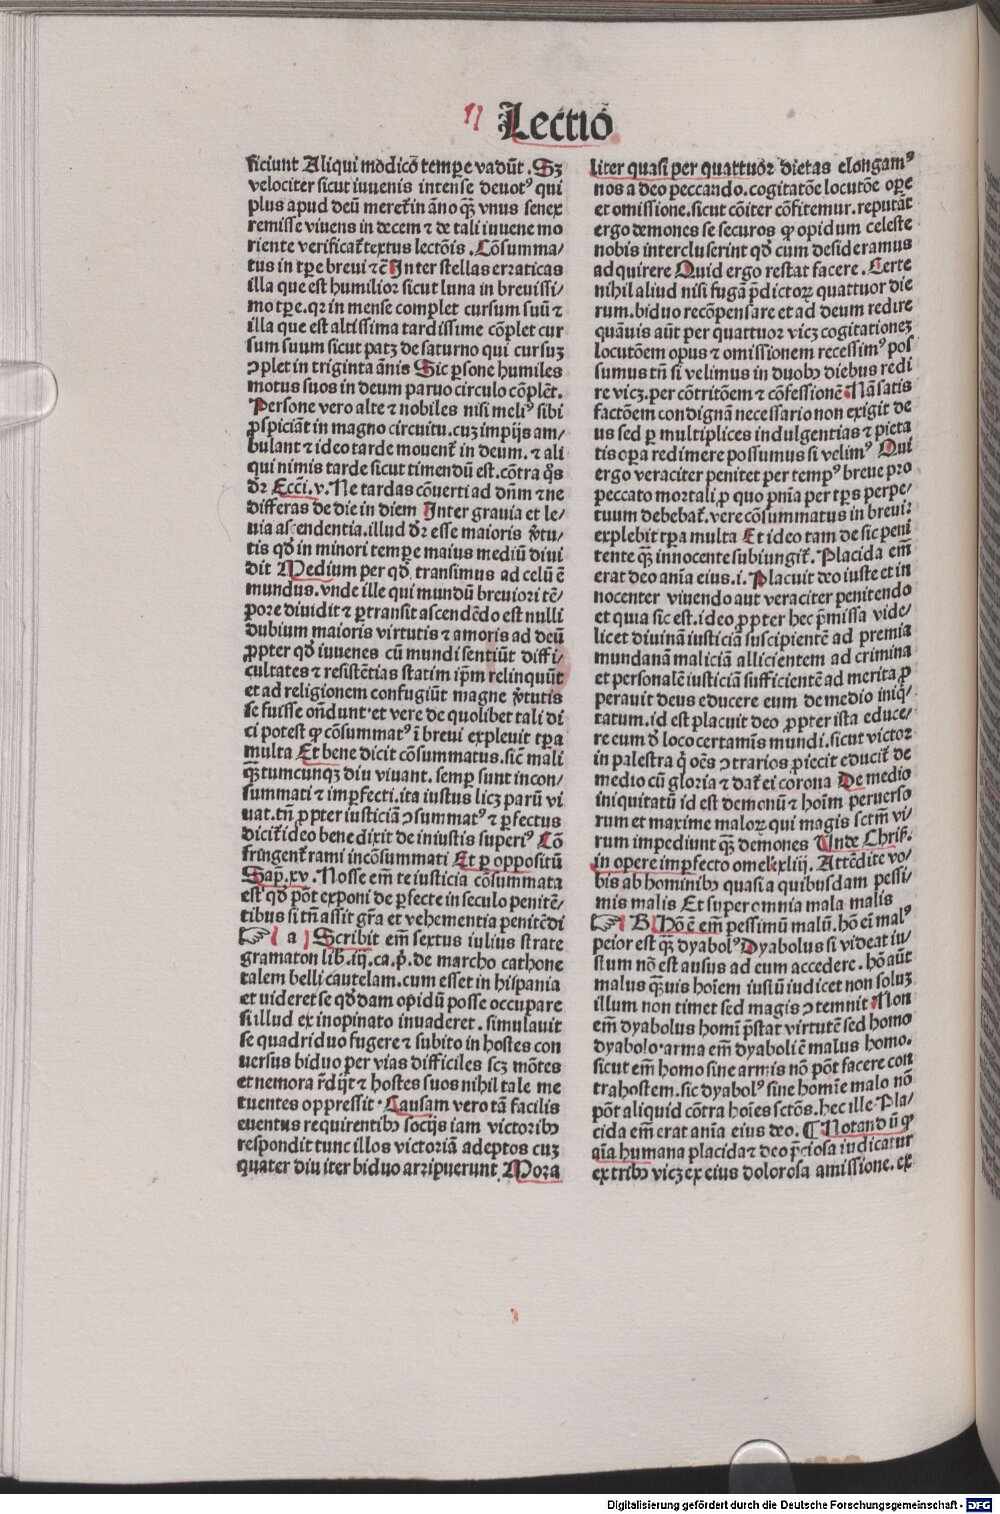 Lectiō
ficiunt Aliqui modicō tempe vadūt. Sꝫ
velociter sicut iuuenis intense deuotꝰ qui
plus apud deū meret̄ in āno qꝫ̄ vnus senex
remisse viuens in decem ⁊ de tali iuuene mo
riente verificat̄ textus lectōis. Cōsumma/
tus in tꝑe breui ⁊c̄ Inter stellas erraticas
illa que est humilior sicut luna in breuissi/
mo tꝑe. qꝛ in mense complet cursum suū ⁊
illa que est altissima tardissime cōplet cur
sum suum sicut patꝫ de saturno qui cursuꝫ
ↄplet in triginta ānis Sic ꝑsone humiles
motus suos in deum paruo circulo cōplēt.
Persone vero alte ⁊ nobiles nisi meliꝰ sibi
ꝓspiciāt in magno circuitu. cuꝫ impijs am/
bulant ⁊ ideo tarde mouent̄ in deum. ⁊ ali
qui nimis tarde sicut timendū est. cōtra q̄s
dꝛ Ecci. v. Ne tardas cōuerti ad dn̄m ⁊ ne
differas de die in diem Inter grauia et le/
uia ascendentia. illud dꝛ esse maioris v̄tu/
tis qd̄ in minori tempe maius mediū diui
dit Medium per qd̄ transimus ad celū ē
mundus. vnde ille qui mundū breuiori tē/
pore diuidit ⁊ ꝑtransit ascendēdo est nulli
dubium maioris virtutis ⁊ amoris ad deū
ꝓpter qd̄ iuuenes cū mundi sentiūt diffi/
cultates ⁊ resistētias statim ip̄m relinquūt
et ad religionem confugiūt magne v̄tutis
se fuisse on̄dunt et vere de quolibet tali di
ci potest ꝙ cōsummatꝰ ī breui expleuit tꝑa
multa Et bene dicit cōsummatus. sic̄ mali
qꝫ̄tumcunqꝫ diu viuant. semꝑ sunt incon/
summati ⁊ imꝑfecti. ita iustus licꝫ parū vi
uat. tn̄ ꝓpter iusticiā ↄsummatꝰ ⁊ ꝑfectus
dicit̄ ideo bene dixit de iniustis superiꝰ Cō
fringent̄ rami incōsummati Et ꝑ oppositū
Sap̄. xv. Nosse em̄ te iusticia cōsummata
est qd̄ pōt exponi de ꝑfecte in seculo penitē/
tibus si tn̄ assit gr̄a et vehementia penitēdi
☞ a Scribit em̄ sextus iulius strate
gramaton lib. iij. ca. p̄. de marcho cathone
talem belli cautelam. cum esset in hispania
et videret se qd̄dam opidū posse occupare
si illud ex inopinato inuaderet. simulauit
se quadriduo fugere ⁊ subito in hostes con
uersus biduo per vias difficiles scꝫ mōtes
et nemora r̄dijt ⁊ hostes suos nihil tale me
tuentes oppressit. Causam vero tā facilis
euentus requirentibꝫ socijs iam victoribꝫ
respondit tunc illos victoriā adeptos cuꝫ
quater diu iter biduo arripuerunt Mora
liter quasi per quattuor dietas elongamꝰ
nos a deo peccando. cogitatōe locutōe oꝑe
et omissione. sicut cōiter cōfitemur. reputāt
ergo demones se securos ꝙ opidum celeste
nobis intercluserint qd̄ cum desideramus
adquirere Quid ergo restat facere. Certe
nihil aliud nisi fugā p̄dictoꝝ quattuor die
rum. biduo recōpensare et ad deum redire
quāuis aūt per quattuor vicꝫ cogitationeꝫ
locutōem opus ⁊ omissionem recessimꝰ pos
sumus tn̄ si velimus in duobꝫ diebus redi
re vicꝫ. per cōtritōem ⁊ cōfessionē Nā satis
factōem condignā necessario non exigit de
us sed ꝑ multiplices indulgentias ⁊ pieta
tis oꝑa redimere possumus si velimꝰ Qui
ergo veraciter penitet per tempꝰ breue pro
peccato mortali ꝓ quo pn̄ia per tꝑs perpe/
tuum debebat̄. vere cōsummatus in breui:
explebit tꝑa multa Et ideo tam de sic peni
tente qꝫ̄ innocente subiungit̄. Placida em̄
erat deo anīa eius. i. Placuit deo iuste et in
nocenter viuendo aut veraciter penitendo
et quia sic est. ideo ꝓpter hec p̄missa vide/
licet diuinā iusticiā suscipientē ad premia
mundanā maliciā allicientem ad crimina
et personalē iusticiā sufficientē ad merita ꝓ
perauit deus educere eum de medio iniq̄/
tatum. id est placuit deo ꝓpter ista educe/
re eum d̄ loco certamīs mundi. sicut victor
in palestra q̄ oēs ↄtrarios ꝓiecit educit̄ de
medio cū gloria ⁊ dat̄ ei corona De medio
iniquitatū id est demonū ⁊ hoīm peruerso
rum et maxime maloꝝ qui magis sctm̄ vi/
rum impediunt qꝫ̄ demones Vnde Chrīs.
in opere imꝑfecto omel. xliij. Attēdite vo/
bis ab hominibꝫ quasi a quibusdam pessi/
mis malis Et super omnia mala malis
☞ B Hō ē em̄ pessimū malū. hō eī malꝰ
peior est qꝫ̄ dyabolꝰ Dyabolus si videat iu/
stum nō est ausus ad eum accedere. hō aūt
malus qꝫ̄uis hoīem iustū iudicet non soluꝫ
illum non timet sed magis ↄtemnit Non
em̄ dyabolus homī p̄stat virtutē sed homo
dyabolo. arma em̄ dyaboli ē malus homo.
sicut em̄ homo sine armis nō pōt facere con
tra hostem. sic dyabolꝰ sine homīe malo nō
pōt aliquid cōtra hoīes sctōs. hec ille Pla/
cida em̄ erat anīa eius deo. ¶ Notandū ꝙ
aīa humana placida ⁊ deo p̄ciosa iudicatur
ex tribꝫ vicꝫ ex eius dolorosa amissione. ex
Digitalisierung gefördert durch die Deutsche Forschungsgemeinschaft - DFG